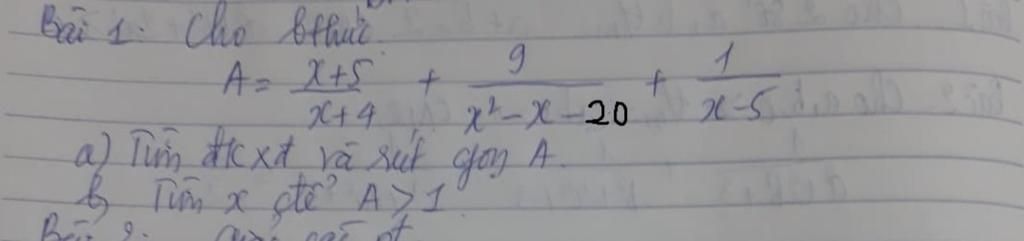 Bài 1: Cho bthức.
A = (x+5)/(x+4) + 9/(x² - x - 20) + 1/(x-5)
a) Tìm đkxđ và rút gọn A.
b, Tìm x để A > 1